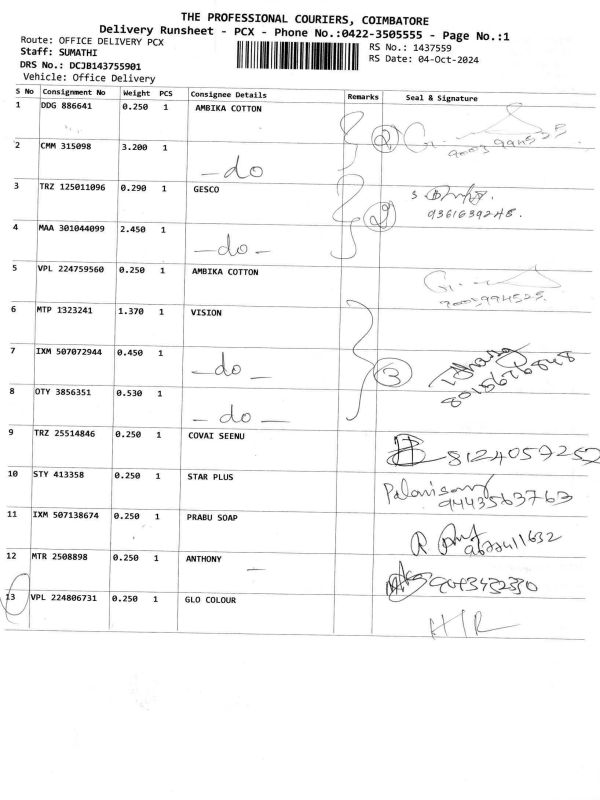 THE PROFESSIONAL COURIERS, COIMBATORE
Delivery Runsheet - PCX - Phone No.:0422-3505555 - Page No.:1
Route: OFFICE DELIVERY PCX
Staff: SUMATHI
DRS No.: DCJB143755901
Vehicle: Office Delivery
RS No.: 1437559
RS Date: 04-Oct-2024
S No Consignment No Weight PCS Consignee Details Remarks Seal & Signature
1 DDG 886641 0.250 1 AMBIKA COTTON
2 CMM 315098 3.200 1 -do
2
3 TRZ 125011096 0.290 1 GESCO
9361639248.
4 MAA 301044099 2.450 1 -do-
2
5 VPL 224759560 0.250 1 AMBIKA COTTON
6 MTP 1323241 1.370 1 VISION
7 IXM 507072944 0.450 1 -do- 3
8 OTY 3856351 0.530 1 -do-
9 TRZ 25514846 0.250 1 COVAI SEENU 8124057257
10 STY 413358 0.250 1 STAR PLUS Palanisamy
9443563763
11 IXM 507138674 0.250 1 PRABU SOAP
12 MTR 2508898 0.250 1 ANTHONY
13 VPL 224806731 0.250 1 GLO COLOUR